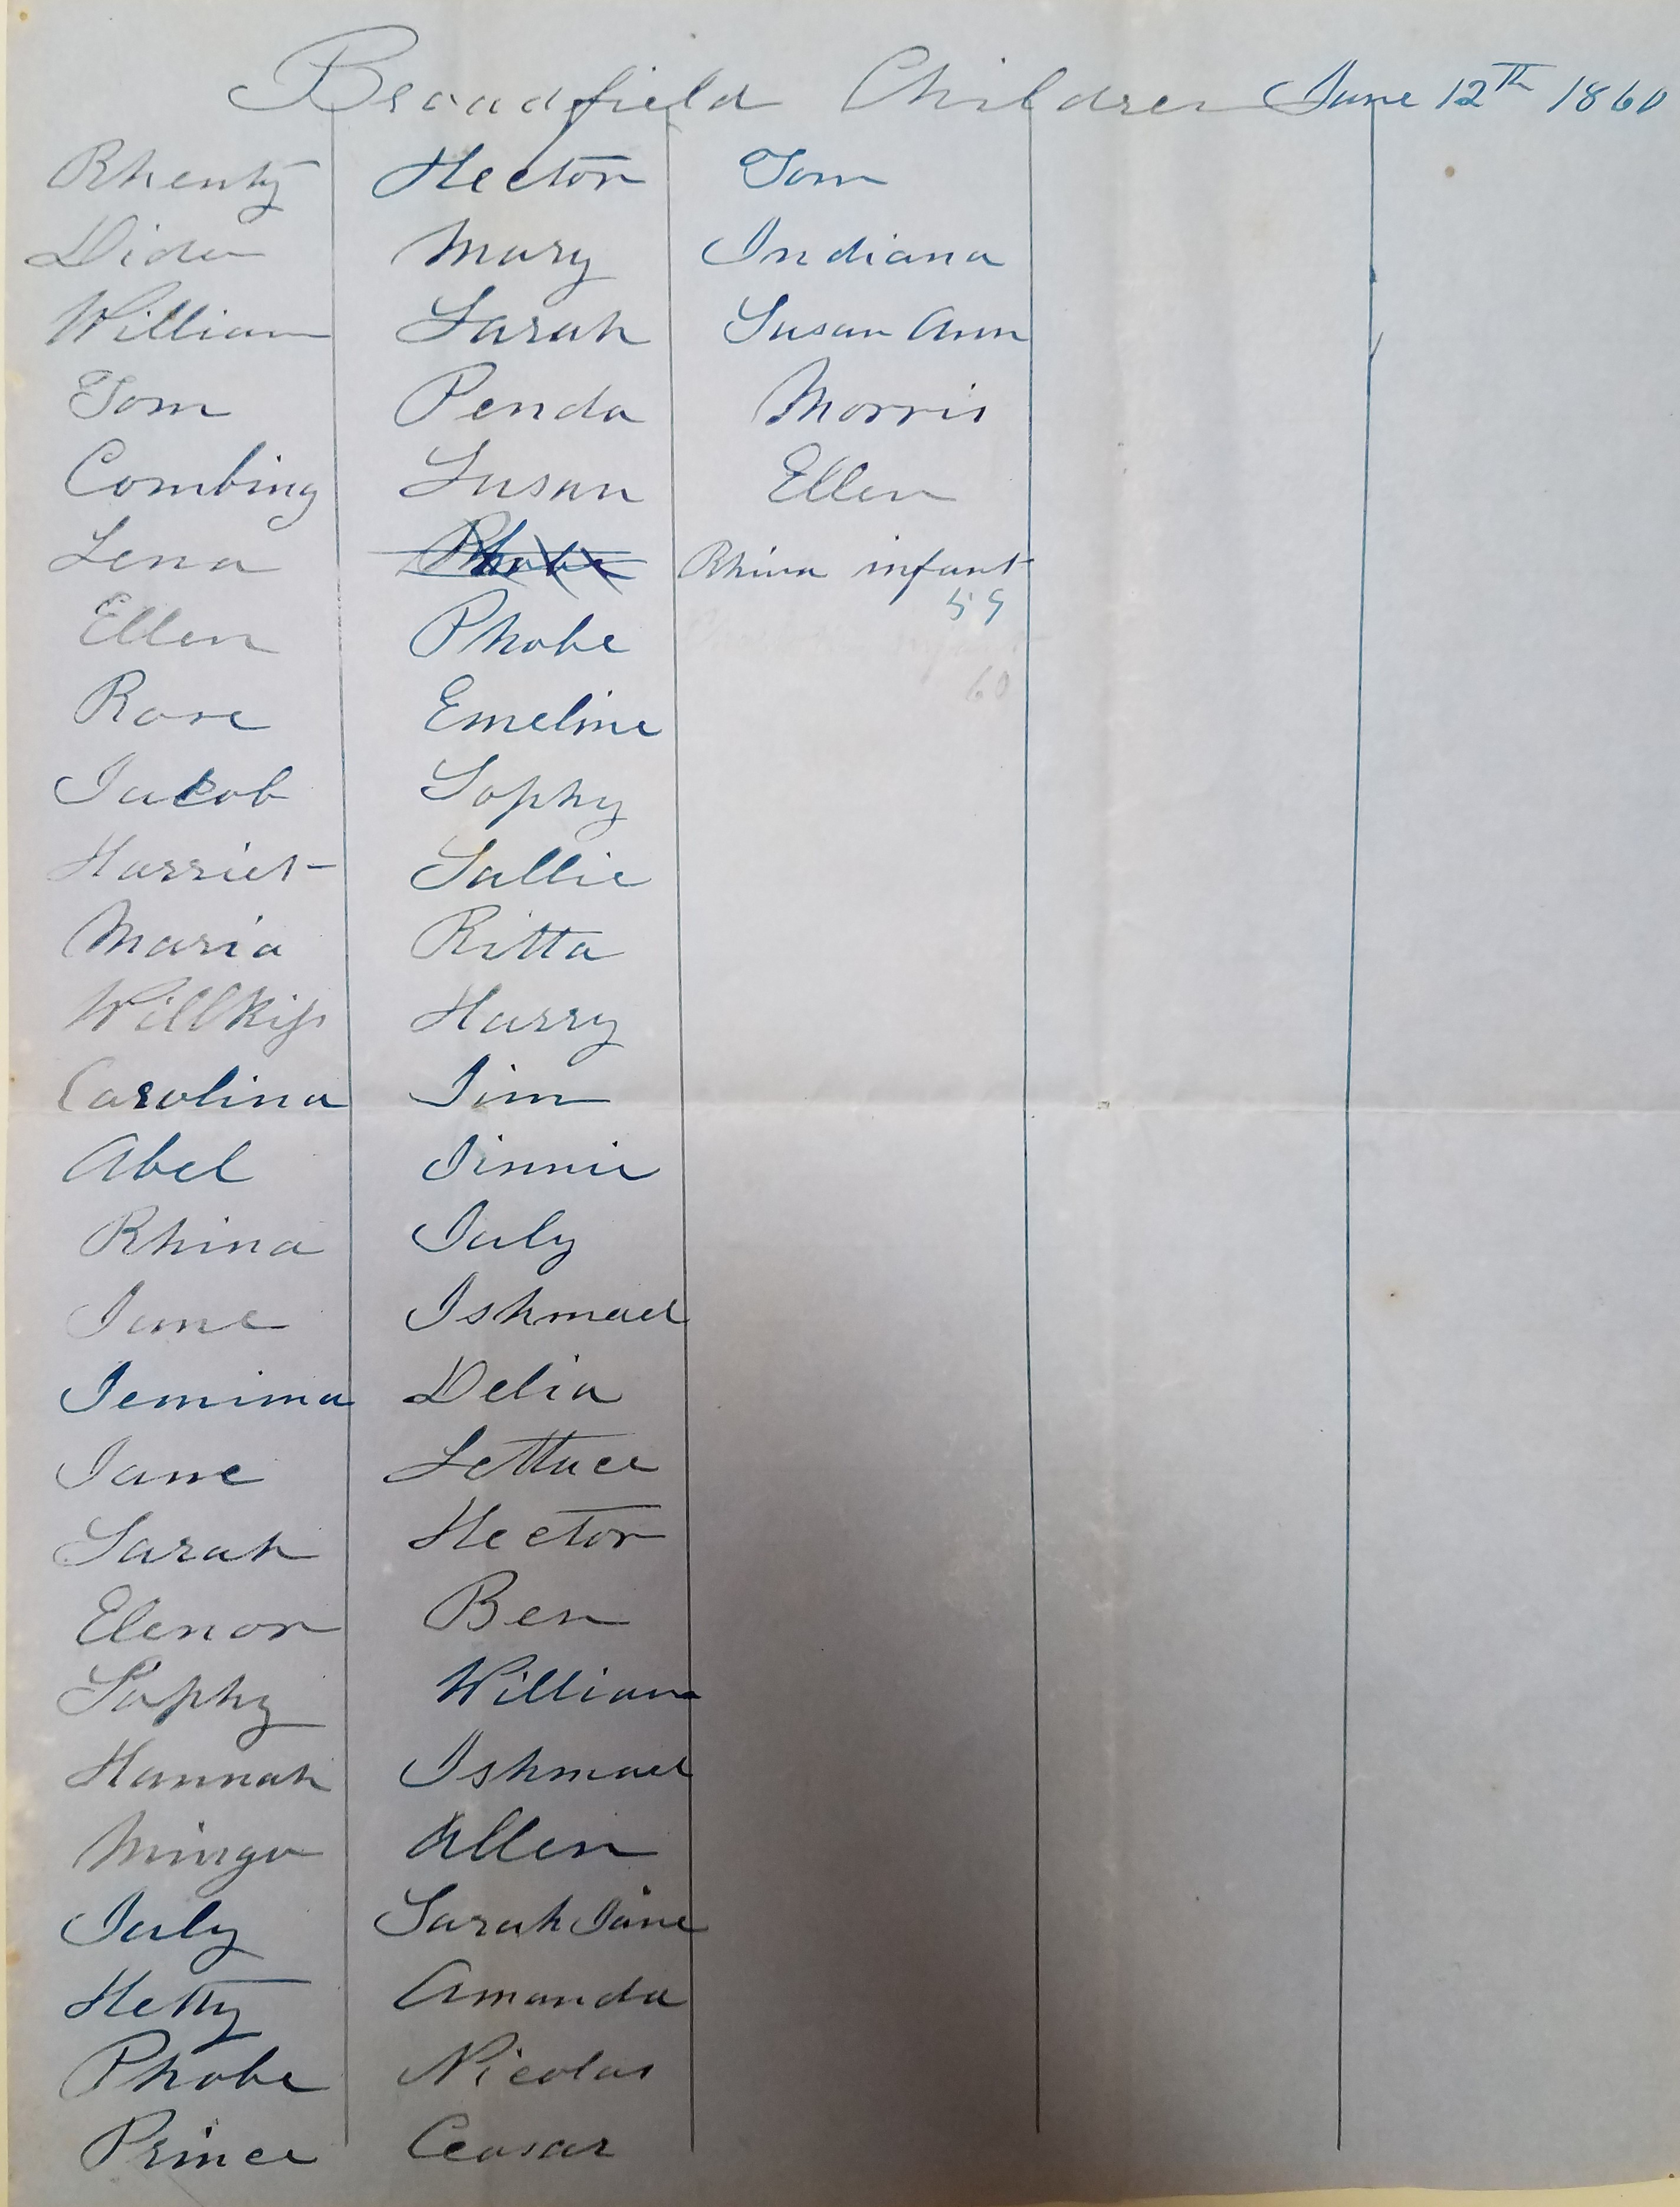 Broadfield Children June 12th 1860
Rhenty
Dido
William
Tom
Combing
Lena
Ellen
Rose
Jacob
Harriet
Maria
Carolina
Abel
Rhina
Jane
Jemima
Jane
Sarah
Elenor
Sophy
Hannah
Mingo
July
Hetty
Phobe
Prince
Hector
Mary
Sarah
Penda
Susan
Phobe
Phobe
Emeline
Sophy
Sallie
Ritta
Harry
Jim
Jinnie
July
Ishmael
Delia
Lettuce
Hector
Ben
William
Ishmael
Allen
Sarah Jane
Amanda
Nicolas
Ceasar
Tom
Indiana
Susan Ann
Morris
Ellen
Rhina infant
59
60